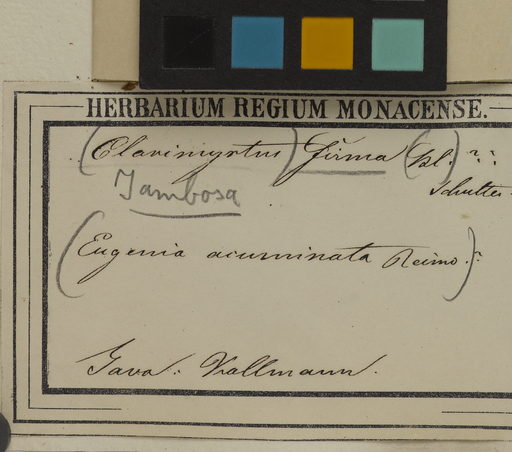 HERBARIUM REGIUM MONACENSE.
(Clavimyrtus) firma (Bl.)??
Jambosa
(Eugenia acuminata Reinw.)
Java: Kollmann.